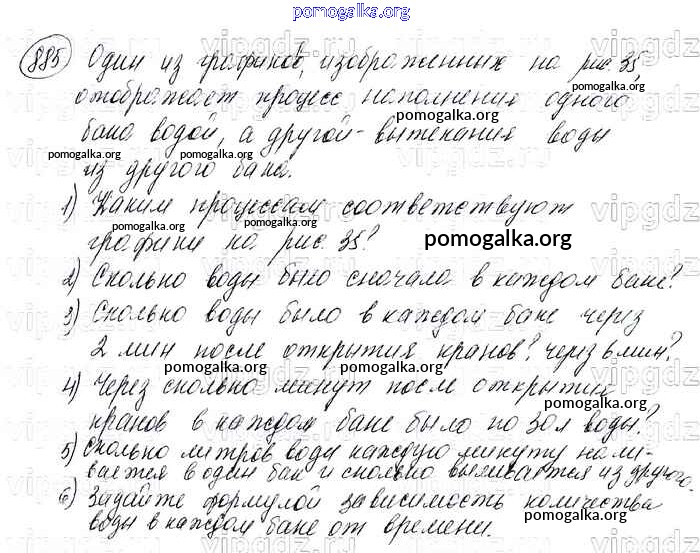 pomogalka.org
885 Один из графиков, изображенных на рис. 35,
отображает процесс наполнения одного
бака водой, а другой - вытекания воды
из другого бака.
1) Каким процессам соответствуют
графики на рис. 35?
2) Сколько воды было сначала в каждом баке?
3) Сколько воды было в каждом баке через
2 мин после открытия кранов? через 6 мин?
4) Через сколько минут после открытия
кранов в каждом баке было по 30 л воды?
5) Сколько литров воды каждую минуту нали-
вается в один бак и сколько выливается из другого.
6) Задайте формулой зависимость количества
воды в каждом баке от времени.
pomogalka.org
vipgdz